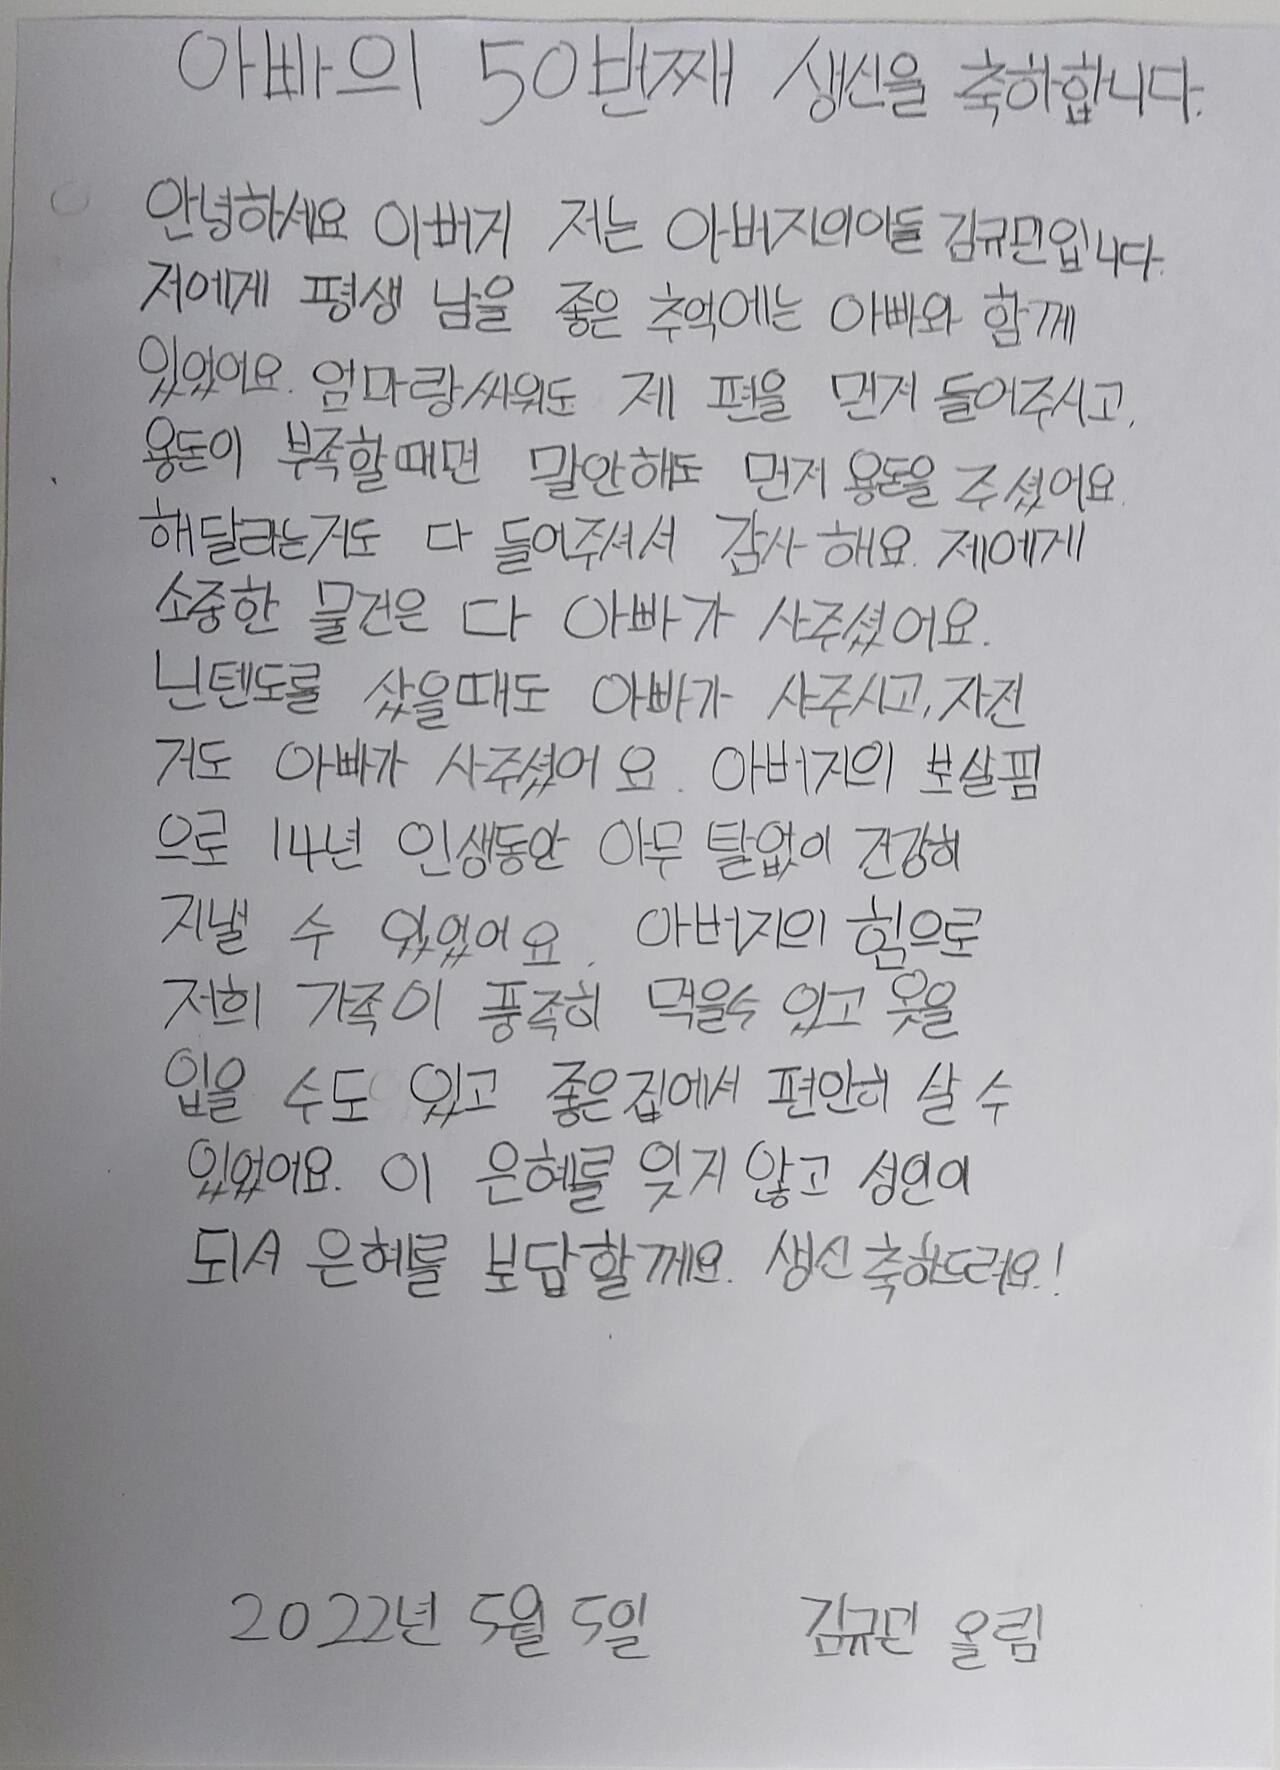 아빠의 50번째 생신을 축하합니다.
안녕하세요 아버지 저는 아버지의아들 김규민입니다.
저에게 평생 남을 좋은 추억에는 아빠와 함께
있었어요. 엄마랑싸워도 제 편을 먼저 들어주시고,
용돈이 부족할때면 말안해도 먼저 용돈을 주셨어요.
해달라는거도 다 들어주셔서 감사해요. 제에게
소중한 물건은 다 아빠가 사주셨어요.
닌텐도를 샀을때도 아빠가 사주시고, 자전
거도 아빠가 사주셨어요. 아버지의 보살핌
으로 14년 인생동안 아무 탈없이 건강히
지낼 수 있었어요. 아버지의 힘으로
저희 가족이 풍족히 먹을수 있고 옷을
입을 수도 있고 좋은집에서 편안히 살 수
있었어요. 이 은혜를 잊지 않고 성인이
되서 은혜를 보답할께요. 생신 축하드려요!
2022년 5월 5일 김규민 올림